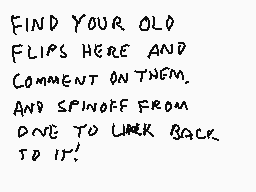 FIND YOUR OLD
FLIPS HERE AND
COMMENT ON THEM.
AND SPINOFF FROM
ONE TO LINK BACK
TO IT!